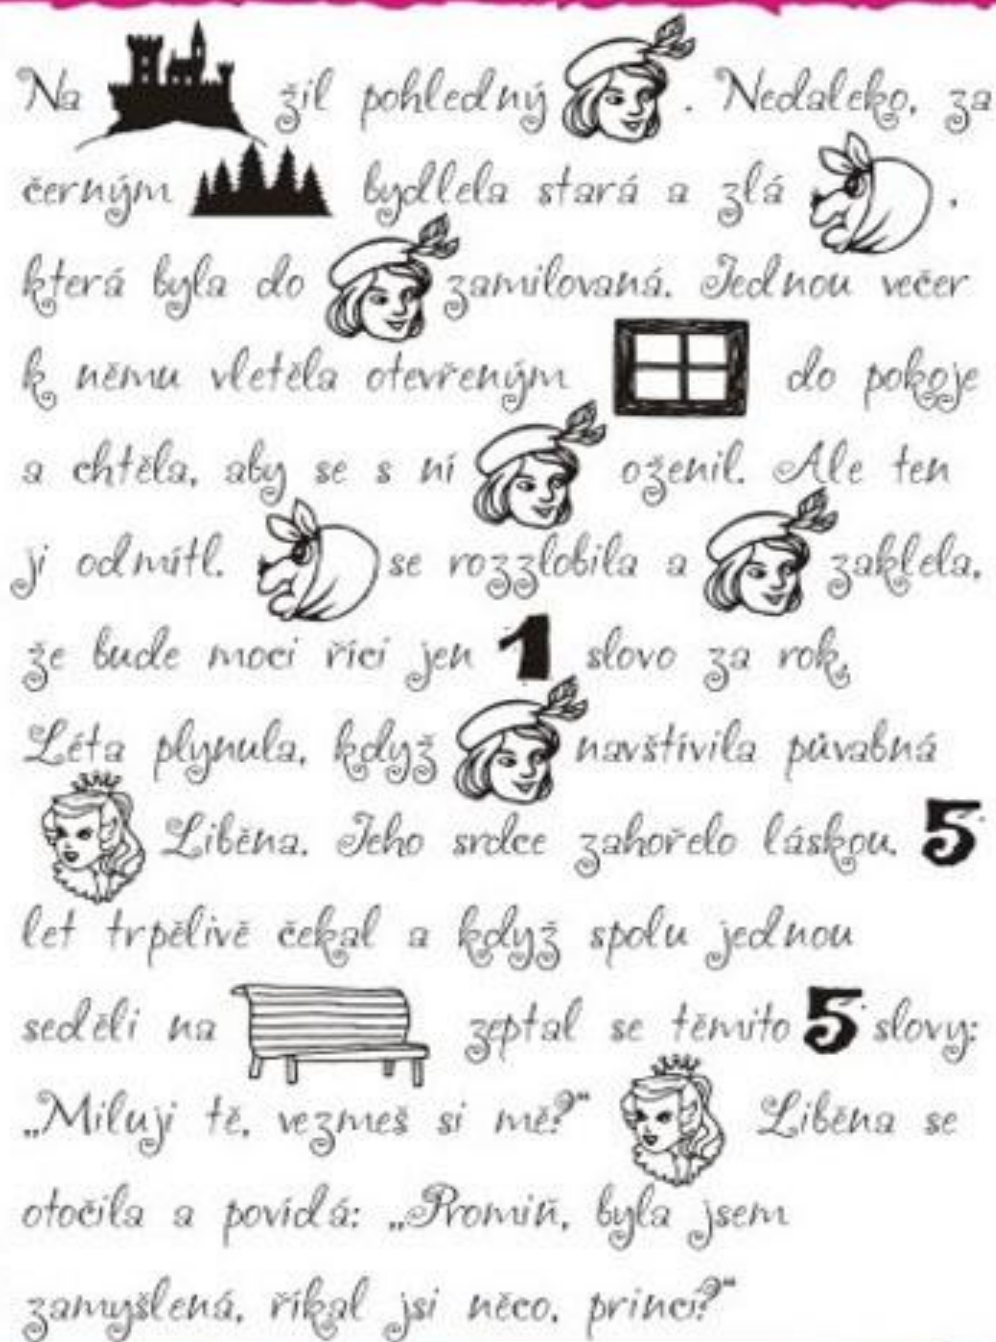 Na žil pohledný . Nedaleko, za
černým bydlela stará a zlá ,
která byla do zamilovaná. Jednou večer
k němu vletěla otevřeným do pokoje
a chtěla, aby se s ní oženil. Ale ten
ji odmítl. se rozzlobila a zaklela,
že bude moci říci jen 1 slovo za rok.
Léta plynula, když navštívila půvabná
Liběna. Jeho srdce zahořelo láskou. 5
let trpělivě čekal a když spolu jednou
seděli na zeptal se těmito 5 slovy:
„Miluji tě, vezmeš si mě?“ Liběna se
otočila a povídá: „Promiň, byla jsem
zamyšlená, říkal jsi něco, princi?“